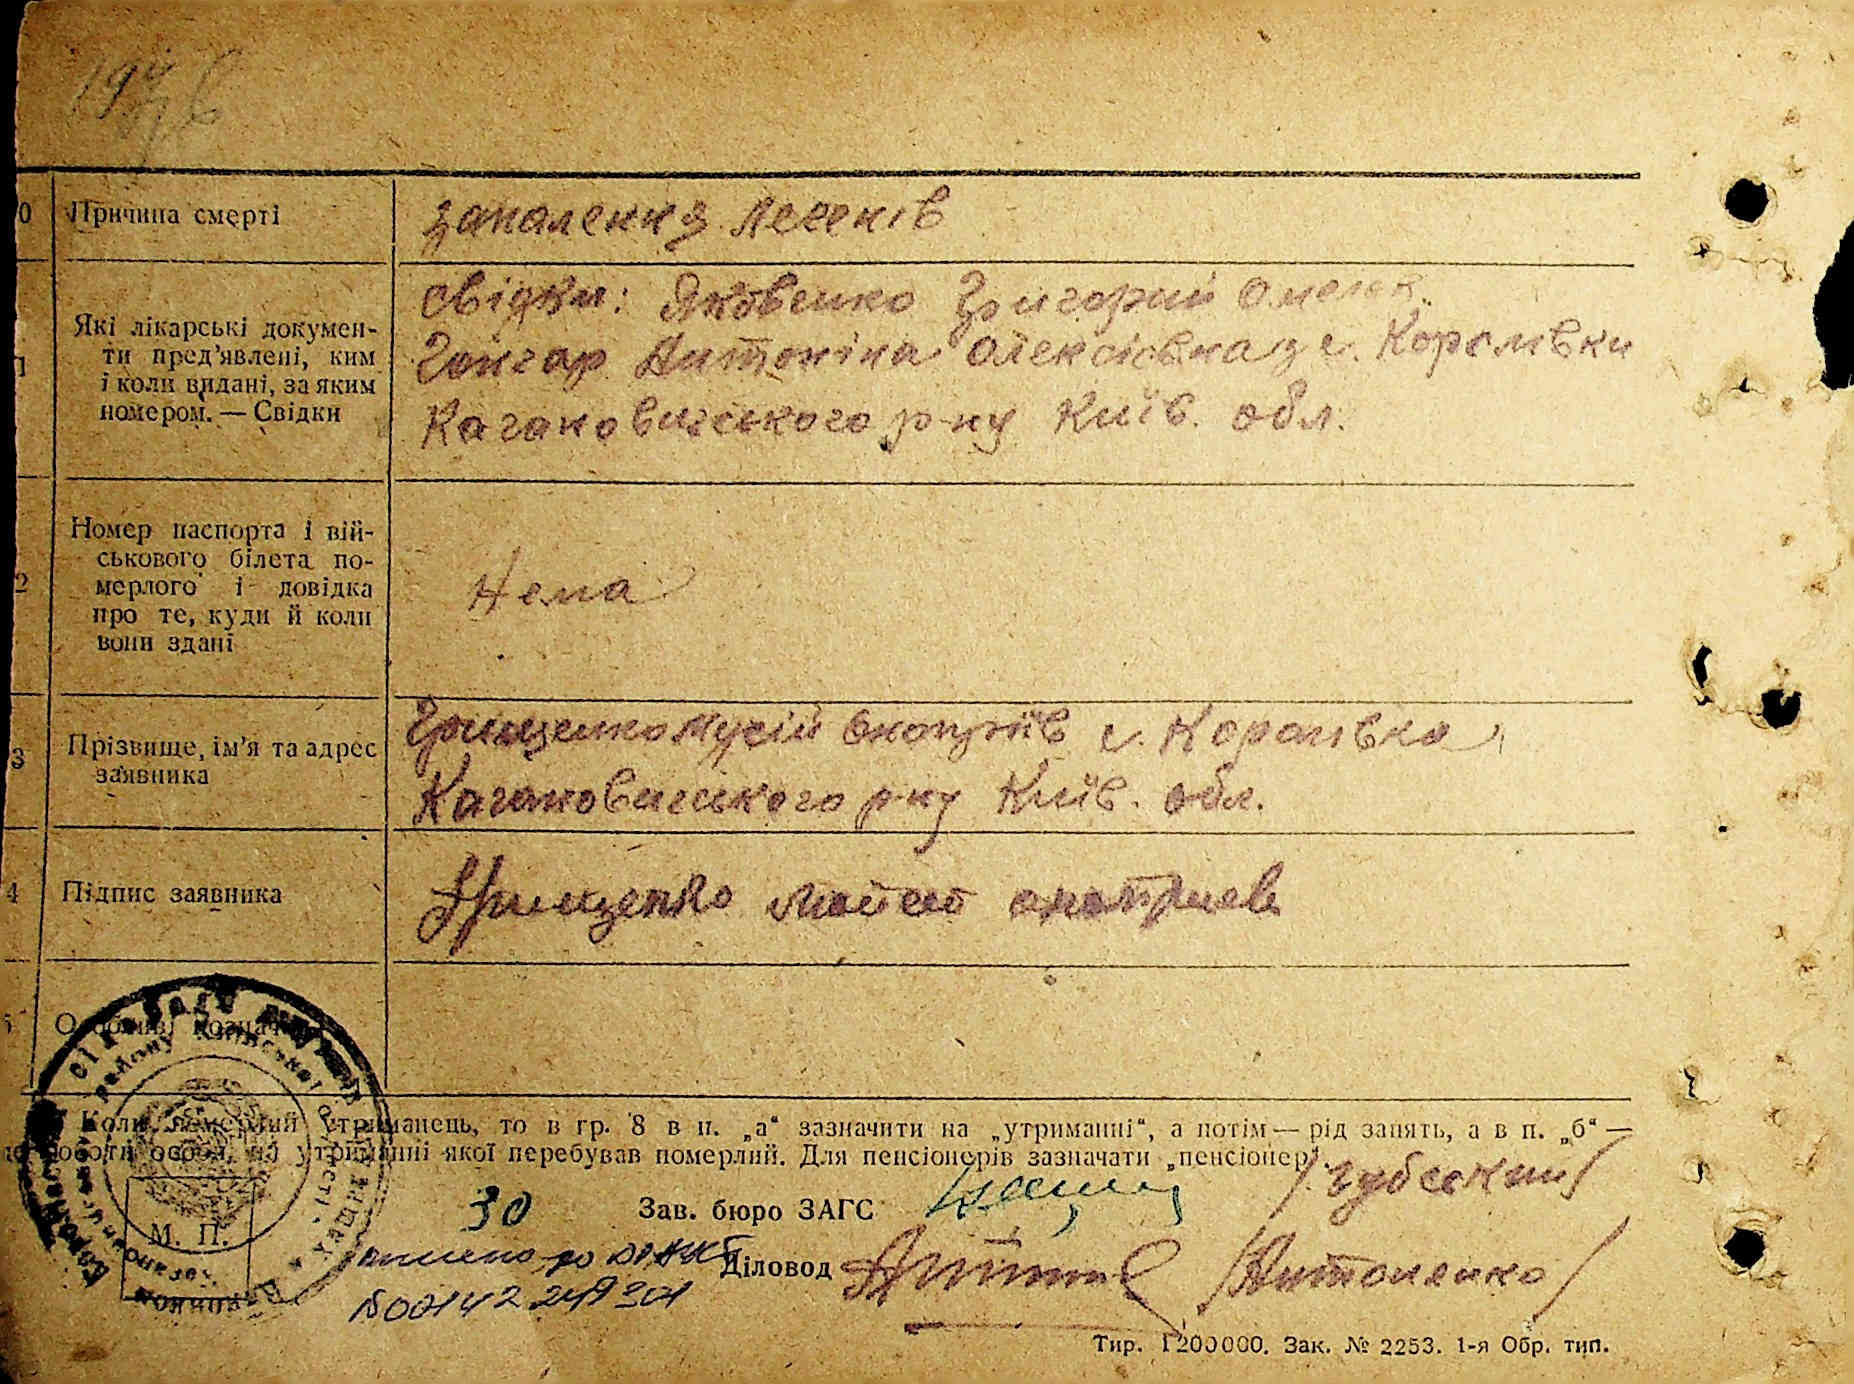 0 Причина смерті запалення легенів
свідки: Яковенко Григорий Омельк.
1 Які лікарські докумен-
ти пред'явлені, ким
і коли видані, за яким
номером. — Свідки
Гонгар Антоніна Олексіївна з с. Королівки
Кагановичського р-ну Київ. обл.
2 Номер паспорта і вій-
ськового білета по-
мерлого і довідка
про те, куди й коли
вони здані
Нема
3 Прізвище, ім'я та адрес
заявника
Грищенко Мусій с. Королівка,
Кагановичського р-ну Київ. обл.
4 Підпис заявника
Грищенко
5 Особливі позначки
Коли померлий утриманець, то в гр. 8 в п. „а“ зазначити на „утриманні“, а потім — рід занять, а в п. „б“ —
роботи особи, на утриманні якої перебував померлий. Для пенсіонерів зазначати „пенсіонер“.
30 Зав. бюро ЗАГС /Губский/
М. П.
Діловод /Антоненко/
Тир. 1200000. Зак. № 2253. 1-я Обр. тип.